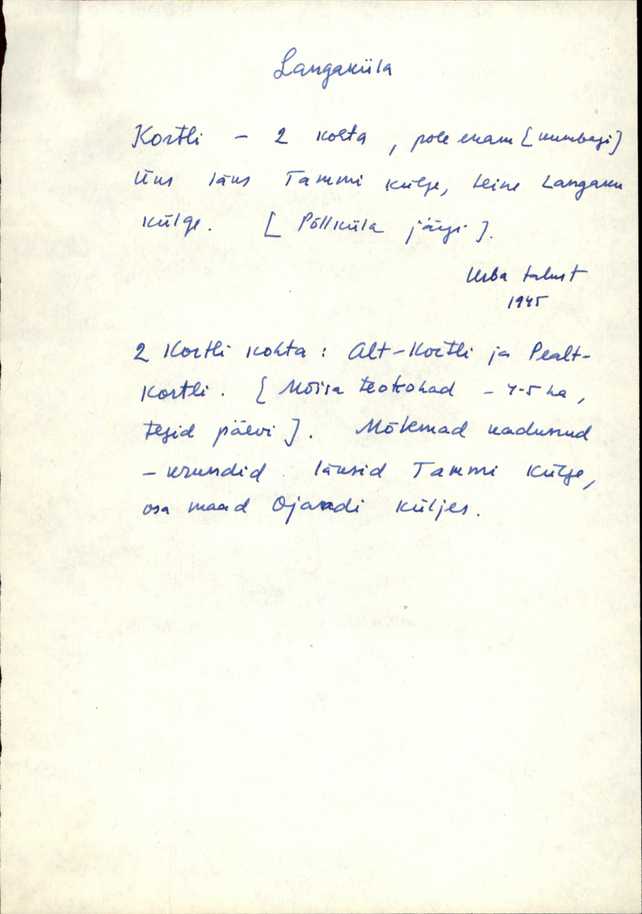 Langaküla
Kortli - 2 kohta, pole enam [kumbagi]
Üks läks Tammi külge, teine Langaku
külge. [Põllküla järgi].
talust
1945
2 Kortli kohta: Alt-Kortli ja Pealt-
Kortli. [Mõisa teokohad - 4-5 ha,
tegid päevi]. Mõlemad kadunud
- krundid läksid Tammi külge,
osa maad Ojaäädi küljes.